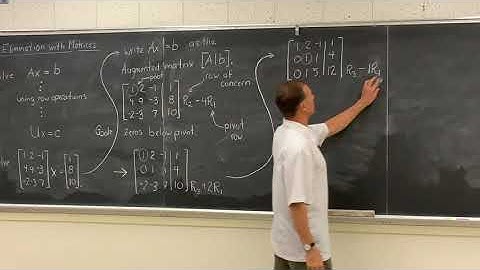 Elimination with Matrices
Solve Ax = b
⋮
using row operations
⋮
Ux = c
Solve [1 2 -1; 4 9 -3; -2 -3 7] x = [1; 8; 10]
write Ax = b as the
Augmented matrix [A|b].
pivot
[1 2 -1 | 1; 4 9 -3 | 8; -2 -3 7 | 10] R2 - 4R1
row of
concern
pivot
row
Goal: zeros below pivot.
→ [1 2 -1 | 1; 0 1 1 | 4; -2 -3 7 | 10] R3 + 2R1
[1 2 -1 | 1; 0 1 1 | 4; 0 1 5 | 12] R3 - 1R